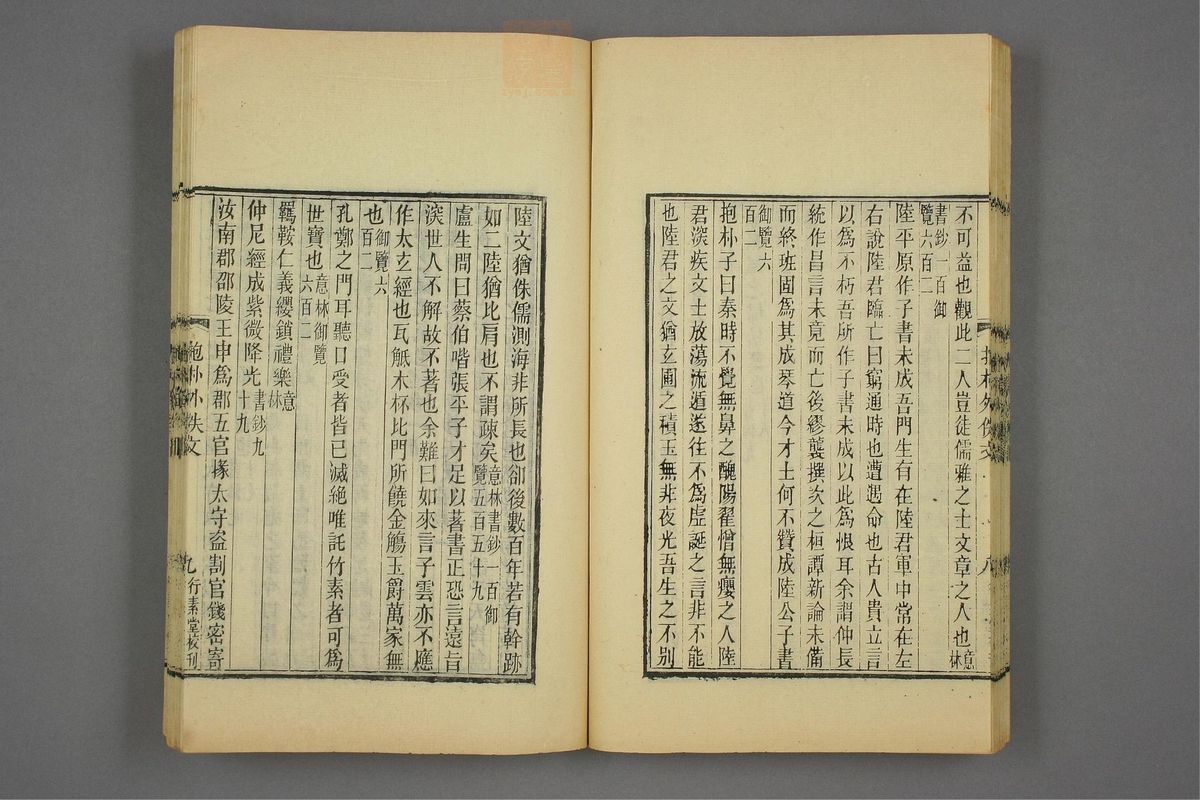 不可益也觀此二人豈徒儒雅之士文章之人也意林
書鈔一百御覽六百二
陸平原作子書未成吾門生有在陸君軍中常在左
右說陸君臨亡曰窮通時也遭遇命也古人貴立言
以為不朽吾所作子書未成以此為恨耳余謂仲長
統作昌言未竟而亡後繆襲撰次之桓譚新論未備
而終班固為其成琴道今才士何不贊成陸公子書
御覽六百二
抱朴子曰秦時不覺無鼻之醜陽翟憎無癭之人陸
君深疾文士放蕩流遁遂往不為虛誕之言非不能
也陸君之文猶玄圃之積玉無非夜光吾生之不別
陸文猶侏儒測海非所長也卻後數百年若有幹跡
如二陸猶比肩也不謂疎矣意林書鈔一百御覽五百五十九
盧生問曰蔡伯喈張平子才足以著書正恐言遠旨
深世人不解故不著也余難曰如來言子雲亦不應
作太玄經也瓦甌木杯比門所饒金觴玉爵萬家無
也御覽六百二
孔鄭之門耳聽口受者皆已滅絕唯託竹素者可為
世寶也意林御覽六百二
羈鞍仁義纓鎖禮樂意林
仲尼經成紫微降光書鈔九十九
汝南郡邵陵王申為郡五官掾太守盜割官錢密寄
抱朴外佚文
九 行素堂校刊